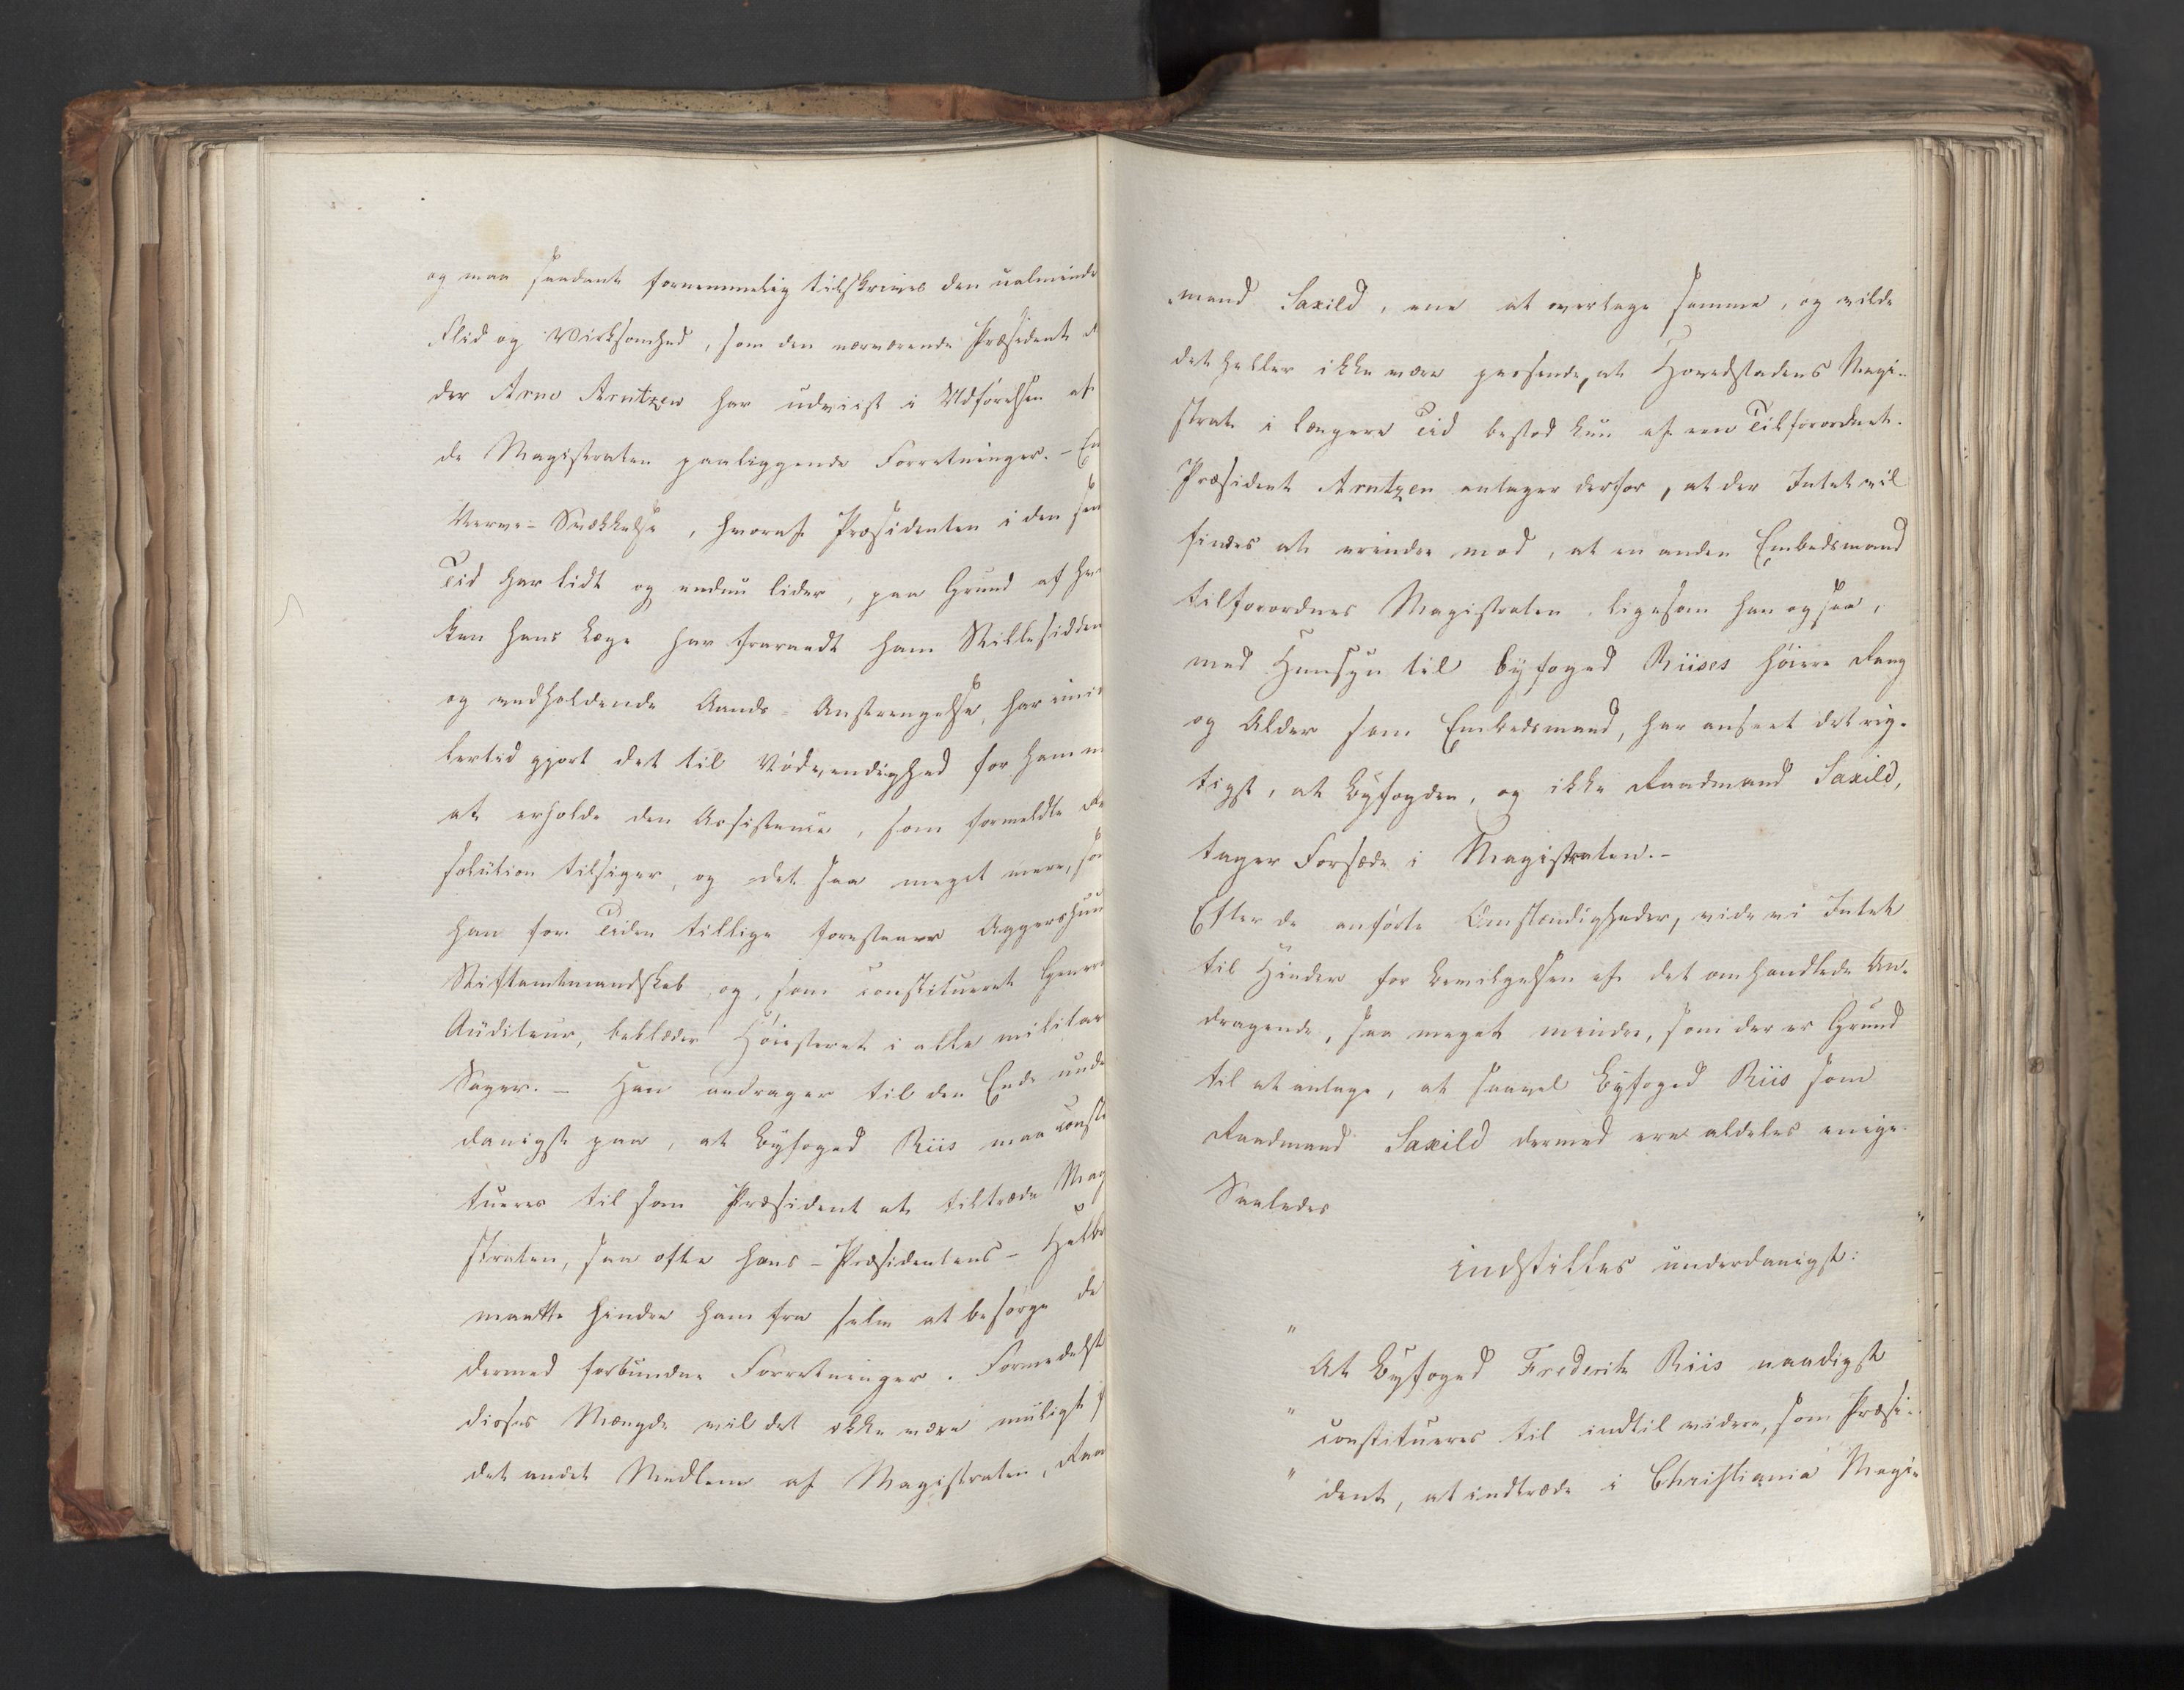 og maa saadant fornemmelig tilskrives den ualminde
Flid og Virksomhed, som den nærværende Præsident
der Arne Arntzen har udviist i Udførelsen af
de Magistraten paaliggende Forretninger. – En
Nerve-Svækkelse, hvoraf Præsidenten i den sen
Tid har lidt og endnu lider, paa Grund af hvi
ken hans Læge har fraraadt ham Stillesidden
og vedholdende Aands-Anstrengelse, har imid
lertid gjort det til Nødvendighed for ham
at erholde den Assistence, som formeldte Re
solution tilsiger, og det saa meget mere, som
han for Tiden tillige forestaaer Aggershuus
Stiftamtmandskab og, som constitueret General
Auditeur, beklæder Høiesteret i alle militaire
Sager. – Han andrager til den Ende unde
danigst paa, at Byfoged Riis maa consti
tueres til som Præsident at tiltræde Mag
straten, saa ofte hans – Præsidentens – Helbr
maatte hindre ham fra selv at besørge de
dermed forbundne Forretninger. Formedelst
disses Mængde vil det ikke være muligt f
det andet Medlem af Magistraten, Raa
mand Saxild, ene at overtage samme, og vilde
det heller ikke være passende, at Hovedstadens Magi-
strat i længere Tid bestod kun af een Tilforordnet.
Præsident Arntzen antager derfor, at der Intet vil
findes at erindre mod, at en anden Embedsmand
tilforordnes Magistraten, ligesom han og saa,
med Hensyn til Byfoged Riises høiere Rang
og Alder som Embedsmand, har anseet det rig-
tigst, at Byfogden, og ikke Raadmand Saxild,
tager Forsæde i Magistraten. –
Efter de anførte Omstændigheder, vide vi Intet
til Hinder for Bevilgelsen af det omhandlede An-
dragende, saa meget mindre, som der er Grund
til at antage, at saavel Byfoged Riis som
Raadmand Saxild dermed ere aldeles enige.
Saaledes
indstilles underdanigst:
" At Byfoged Frederik Riis naadigst
" constitueres til indtil videre, som Præsi-
" dent, at indtræde i Christiania Magi-